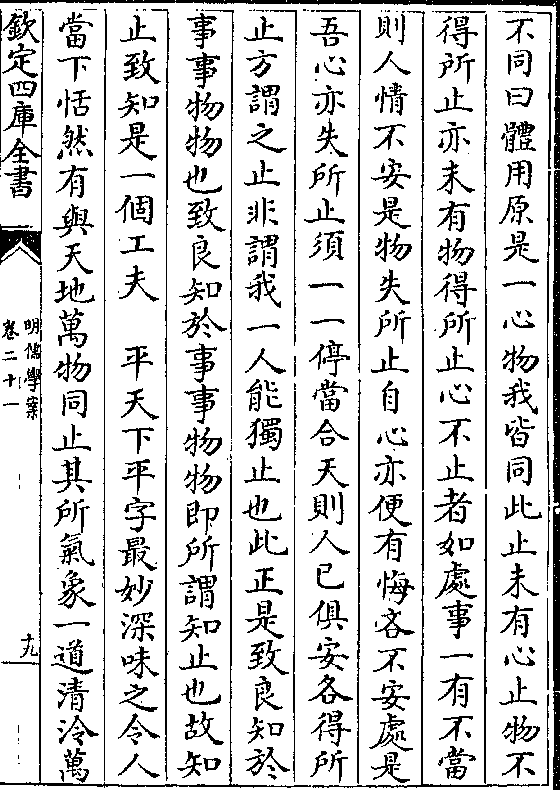 不同曰體用原是一心物我皆同此止未有心止物不
得所止亦未有物得所止心不止者如處事一有不當
則人情不安是物失所止自心亦便有悔吝不安處是
吾心亦失所止須一一停當合天則人已俱安各得所
止方謂之止非謂我一人能獨止也此正是致良知於
事事物物也致良知於事事物物即所謂知止也故知
止致知是一個工夫　平天下平字最妙深味之令人
當下恬然有與天地萬物同止其所氣象一道清泠萬
欽定四庫全書
明儒學案
卷二十一
十九